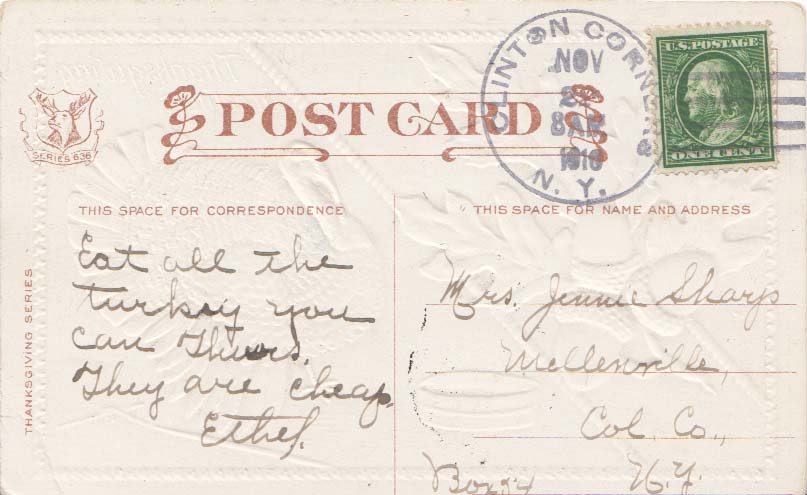 CLINTON CORNERS
NOV
2
8 AM
1910
N. Y.
U.S. POSTAGE
ONE CENT
POST CARD
SERIES 636
THIS SPACE FOR CORRESPONDENCE
THIS SPACE FOR NAME AND ADDRESS
THANKSGIVING SERIES
Eat all the
turkey you
can Thurs.
They are cheap.
Ethel.
Mrs. Jennie Sharp
Mellenville,
Col. Co.,
N.Y.